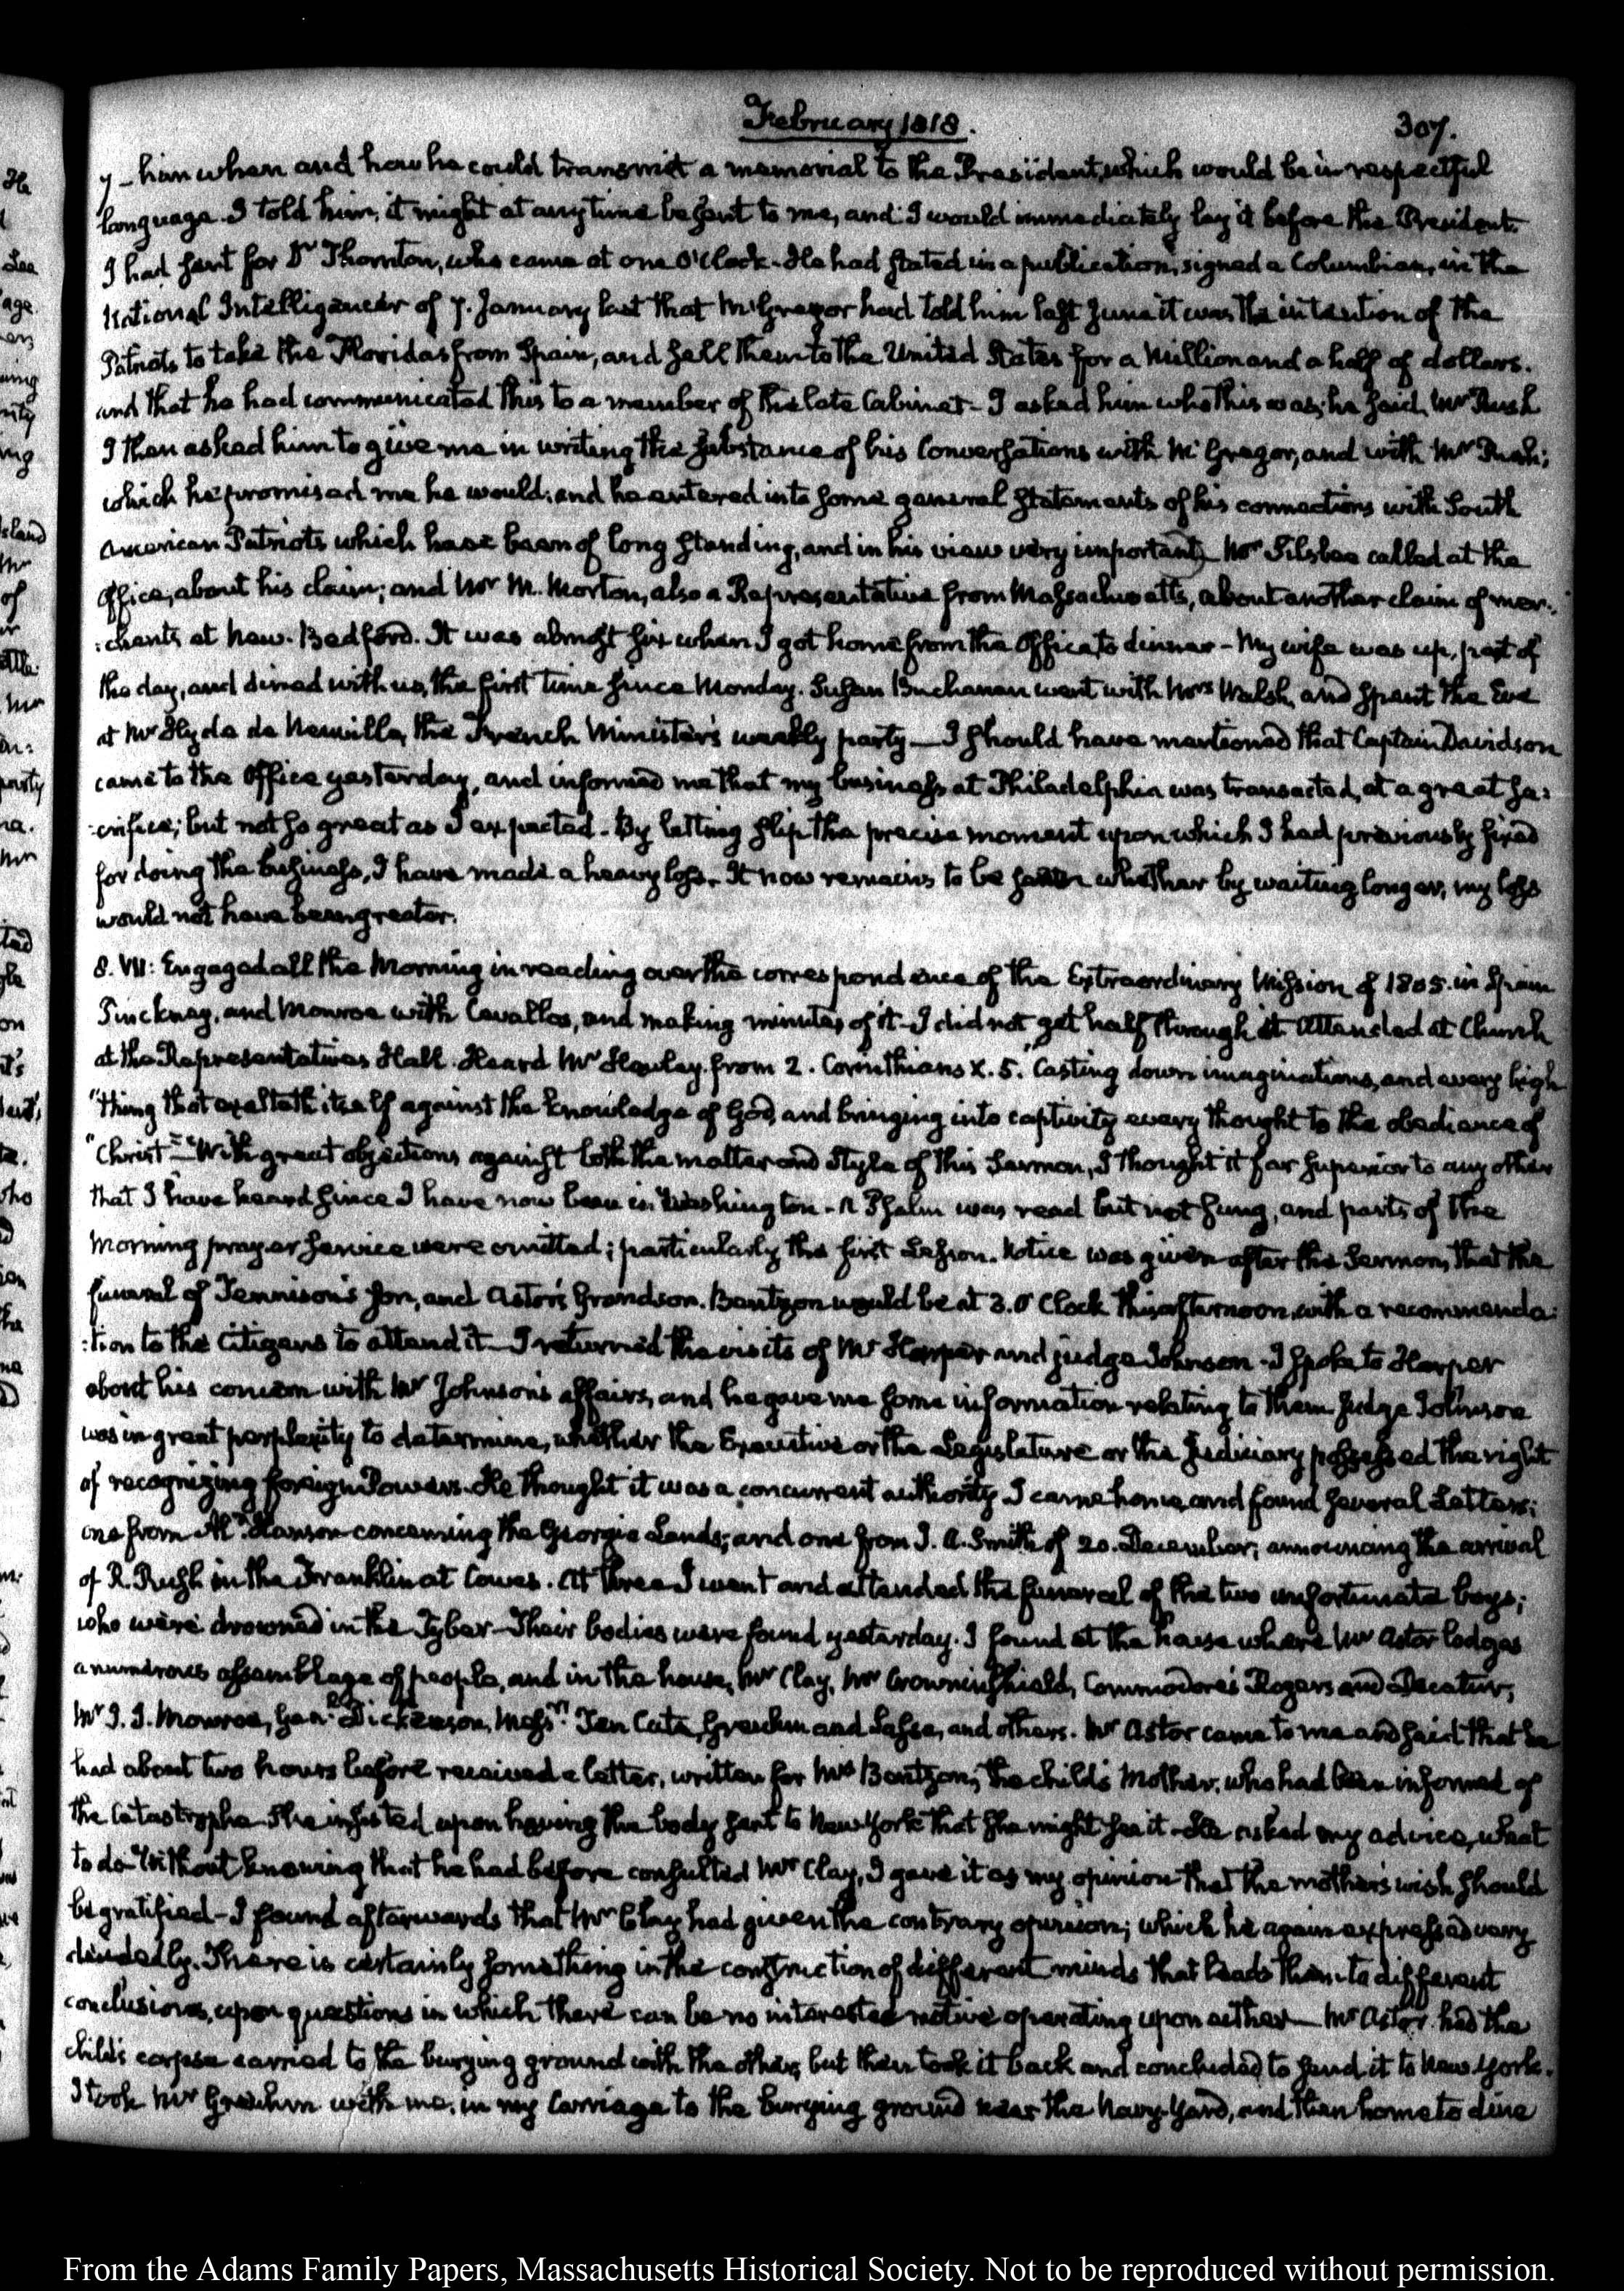 February 1818.
307.
7 – him when and how he could transmit a memorial to the President, which would be in respectful
language. I told him, it might at any time be sent to me, and I would immediately lay it before the President.
I had sent for Dr Thornton, who came at one O'Clock. He had stated in a publication, signed a Columbian, in the
National Intelligencer of 7. January last that McGregor had told him last June it was the intention of the
Patriots to take the Floridas from Spain, and sell them to the United States for a Million and a half of dollars.
and that he had communicated this to a member of the late Cabinet – I asked him who this was; he said, Mr Rush
I then asked him to give me in writing the substance of his Conversations with McGregor, and with Mr Rush;
which he promised me he would; and he entered into some general statements of his connections with South
American Patriots which have been of long standing, and in his view very important – Mr Silsbee called at the
Office, about his claim; and Mr M. Morton, also a Representative from Massachusetts, about another claim of mer:
:chants at New-Bedford. It was almost six when I got home from the Office to dinner – My wife was up, part of
the day, and dined with us, the first time since Monday. Susan Buchanan went with Mrs Walsh, and spent the Eve
at Mr Hyde de Neuville, the French Minister's weekly party — I should have mentioned that Captain Davidson
came to the Office yesterday, and informed me that my business at Philadelphia was transacted, at a great sa:
:crifice; but not so great as I expected – By letting slip the precise moment upon which I had previously fixed
for doing the business, I have made a heavy loss. It now remains to be seen whether by waiting longer, my loss
would not have been greater.
8. VII: Engaged all the Morning in reading over the correspondence of the Extraordinary Mission of 1805. in Spain
Pinckney, and Monroe with Cevallos, and making minutes of it – I did not get half through it Attended at Church
at the Representatives Hall. Heard Mr Hawley from 2. Corinthians X. 5. "Casting down imaginations, and every high
"thing that exalteth itself against the knowledge of God, and bringing into captivity every thought to the obedience of
"Christ" – With great objections against both the matter and style of this Sermon, I thought it far superior to any other
that I have heard since I have now been in Washington – A Psalm was read but not sung, and parts of the
Morning prayer service were omitted; particularly the first Lesson. Notice was given after the Sermon, that the
funeral of Tennison's son, and Astor's Grandson, Bentzon would be at 3. O'Clock this afternoon, with a recommenda:
:tion to the Citizens to attend it – I returned the visits of Mr Harper and judge Johnson – I spoke to Harper
about his concern with Mr Johnson's affairs, and he gave me some information relating to them Judge Johnson
was in great perplexity to determine, whether the Executive or the Legislature or the Judiciary possessed the right
of recognizing foreign Powers. He thought it was a concurrent authority I came home and found several Letters;
one from Hanson concerning the Georgia Lands; and one from J. A. Smith of 20. December; announcing the arrival
of R. Rush in the Franklin at Cowes. At three I went and attended the funeral of the two unfortunate boys;
who were drowned in the Tyber – Their bodies were found yesterday. I found at the house where Mr Astor lodges
a numerous assemblage of people, and in the house, Mr Clay, Mr Crowninshield, Commodores Rogers and Decatur,
Mr J. J. Monroe, Genl Dickenson, Messrs Ten Cate, Greuhm and and others. Mr Astor came to me and said that he
had about two hours before received a letter, written for Mrs Bentzon, the child's Mother, who had been informed of
the Catastrophe. She insisted upon having the body sent to New York that she might see it – He asked my advice, what
to do Without knowing that he had before consulted Mr Clay, I gave it as my opinion that the mother's wish should
be gratified – I found afterwards that Mr Clay had given the contrary opinion; which he again expressed very
decidedly. There is certainly something in the construction of different minds that leads them to different
conclusions, upon questions in which there can be no interested motive operating upon either — Mr Astor had the
child's corpse carried to the burying ground with the other, but then took it back and concluded to send it to New York.
I took Mr Greuhm with me, in my Carriage to the burying ground near the Navy-Yard, and then home to dine
From the Adams Family Papers, Massachusetts Historical Society. Not to be reproduced without permission.